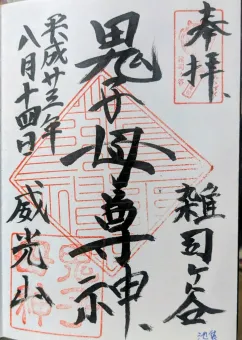 奉拝
雑司ヶ谷
鬼子母尊神
威光山
平成廿三年
八月十四日